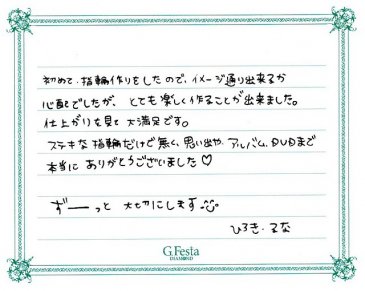 初めて、指輪作りをしたので、イメージ通り出来るか
心配でしたが、とても楽しく作ることが出来ました。
仕上がりを見て大満足です。
ステキな指輪だけど無く、思い出や、アルバム、DVDまで
本当にありがとうございました♡
ずーーっと大切にします
ひろき・るな
G.Festa
DIAMOND